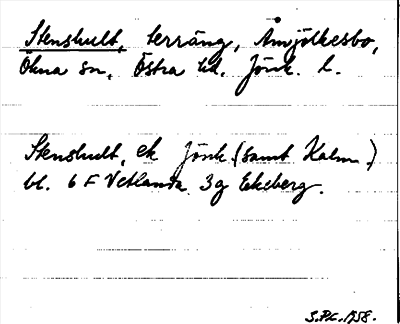 Stenshult, terräng, Åmjölkesbo,
Ökna sn, Östra hd. Jönk. l.
Stenshult, ek Jönk. (samt Kalm.)
bl. 6 F Vetlanda 3g Ekeberg.
S.Pk. 1958.